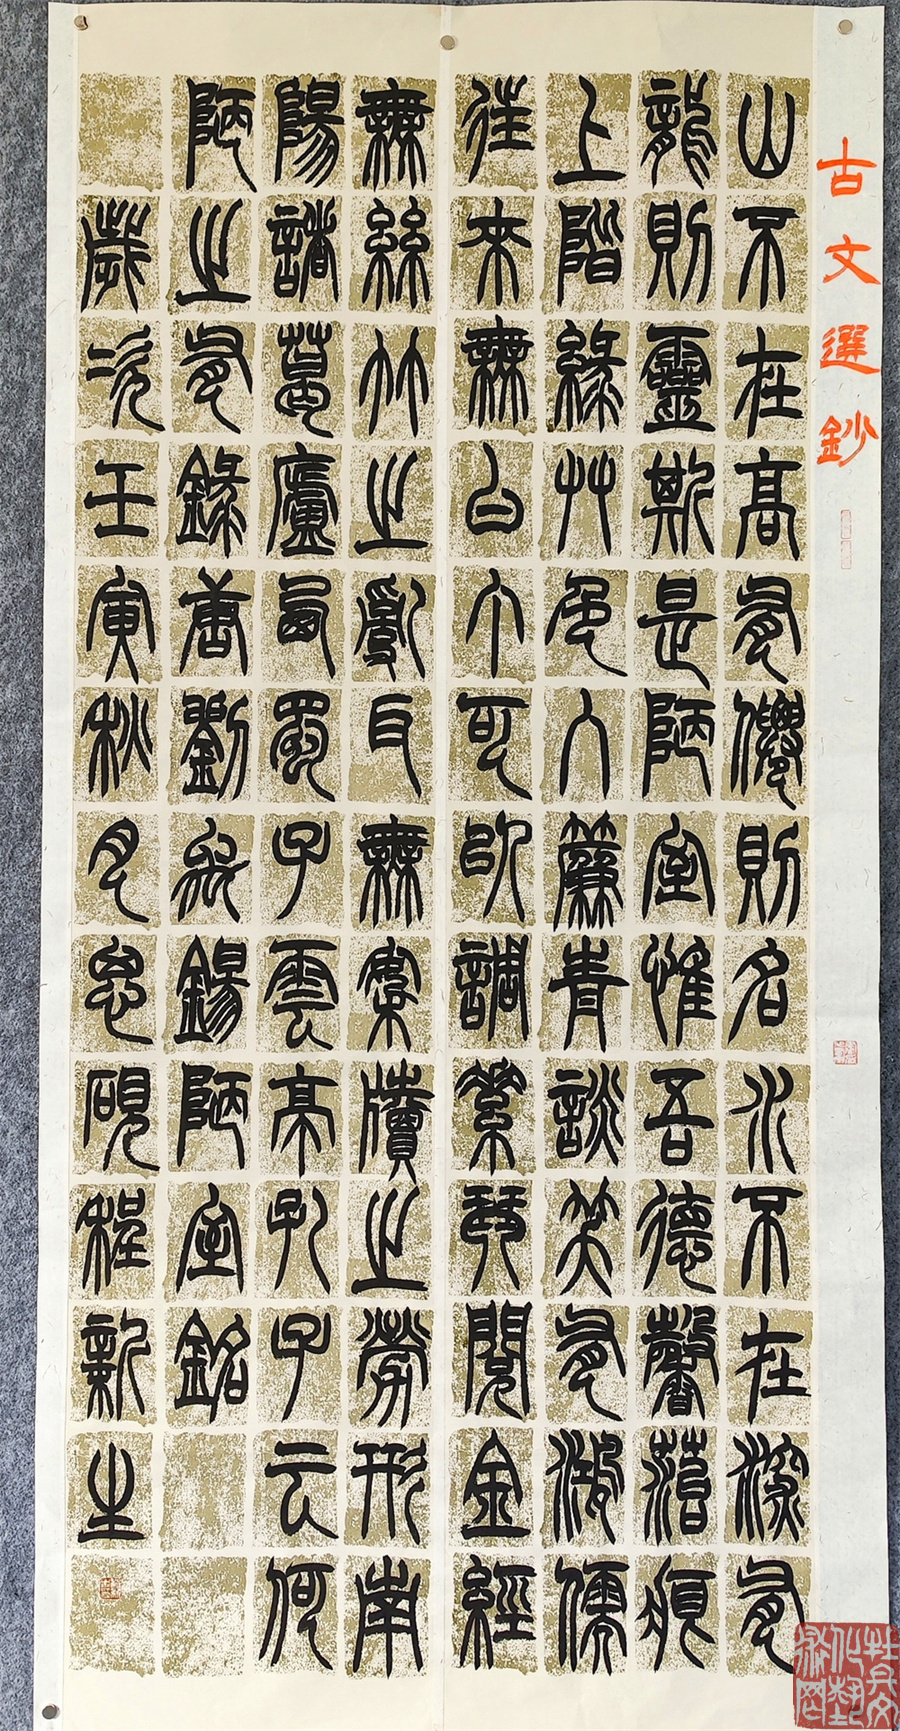 古文選鈔
山不在高有僊則名水不在深有
龍則靈斯是陋室惟吾德馨苔痕
上階綠艸色入簾青談笑有鴻儒
往來無白丁可以調素琴閱金經
無絲竹之亂耳無案牘之勞形南
陽諸葛廬西蜀子雲亭孔子云何
陋之有錄唐劉禹錫陋室銘
歲次壬寅秋月思硯程新生